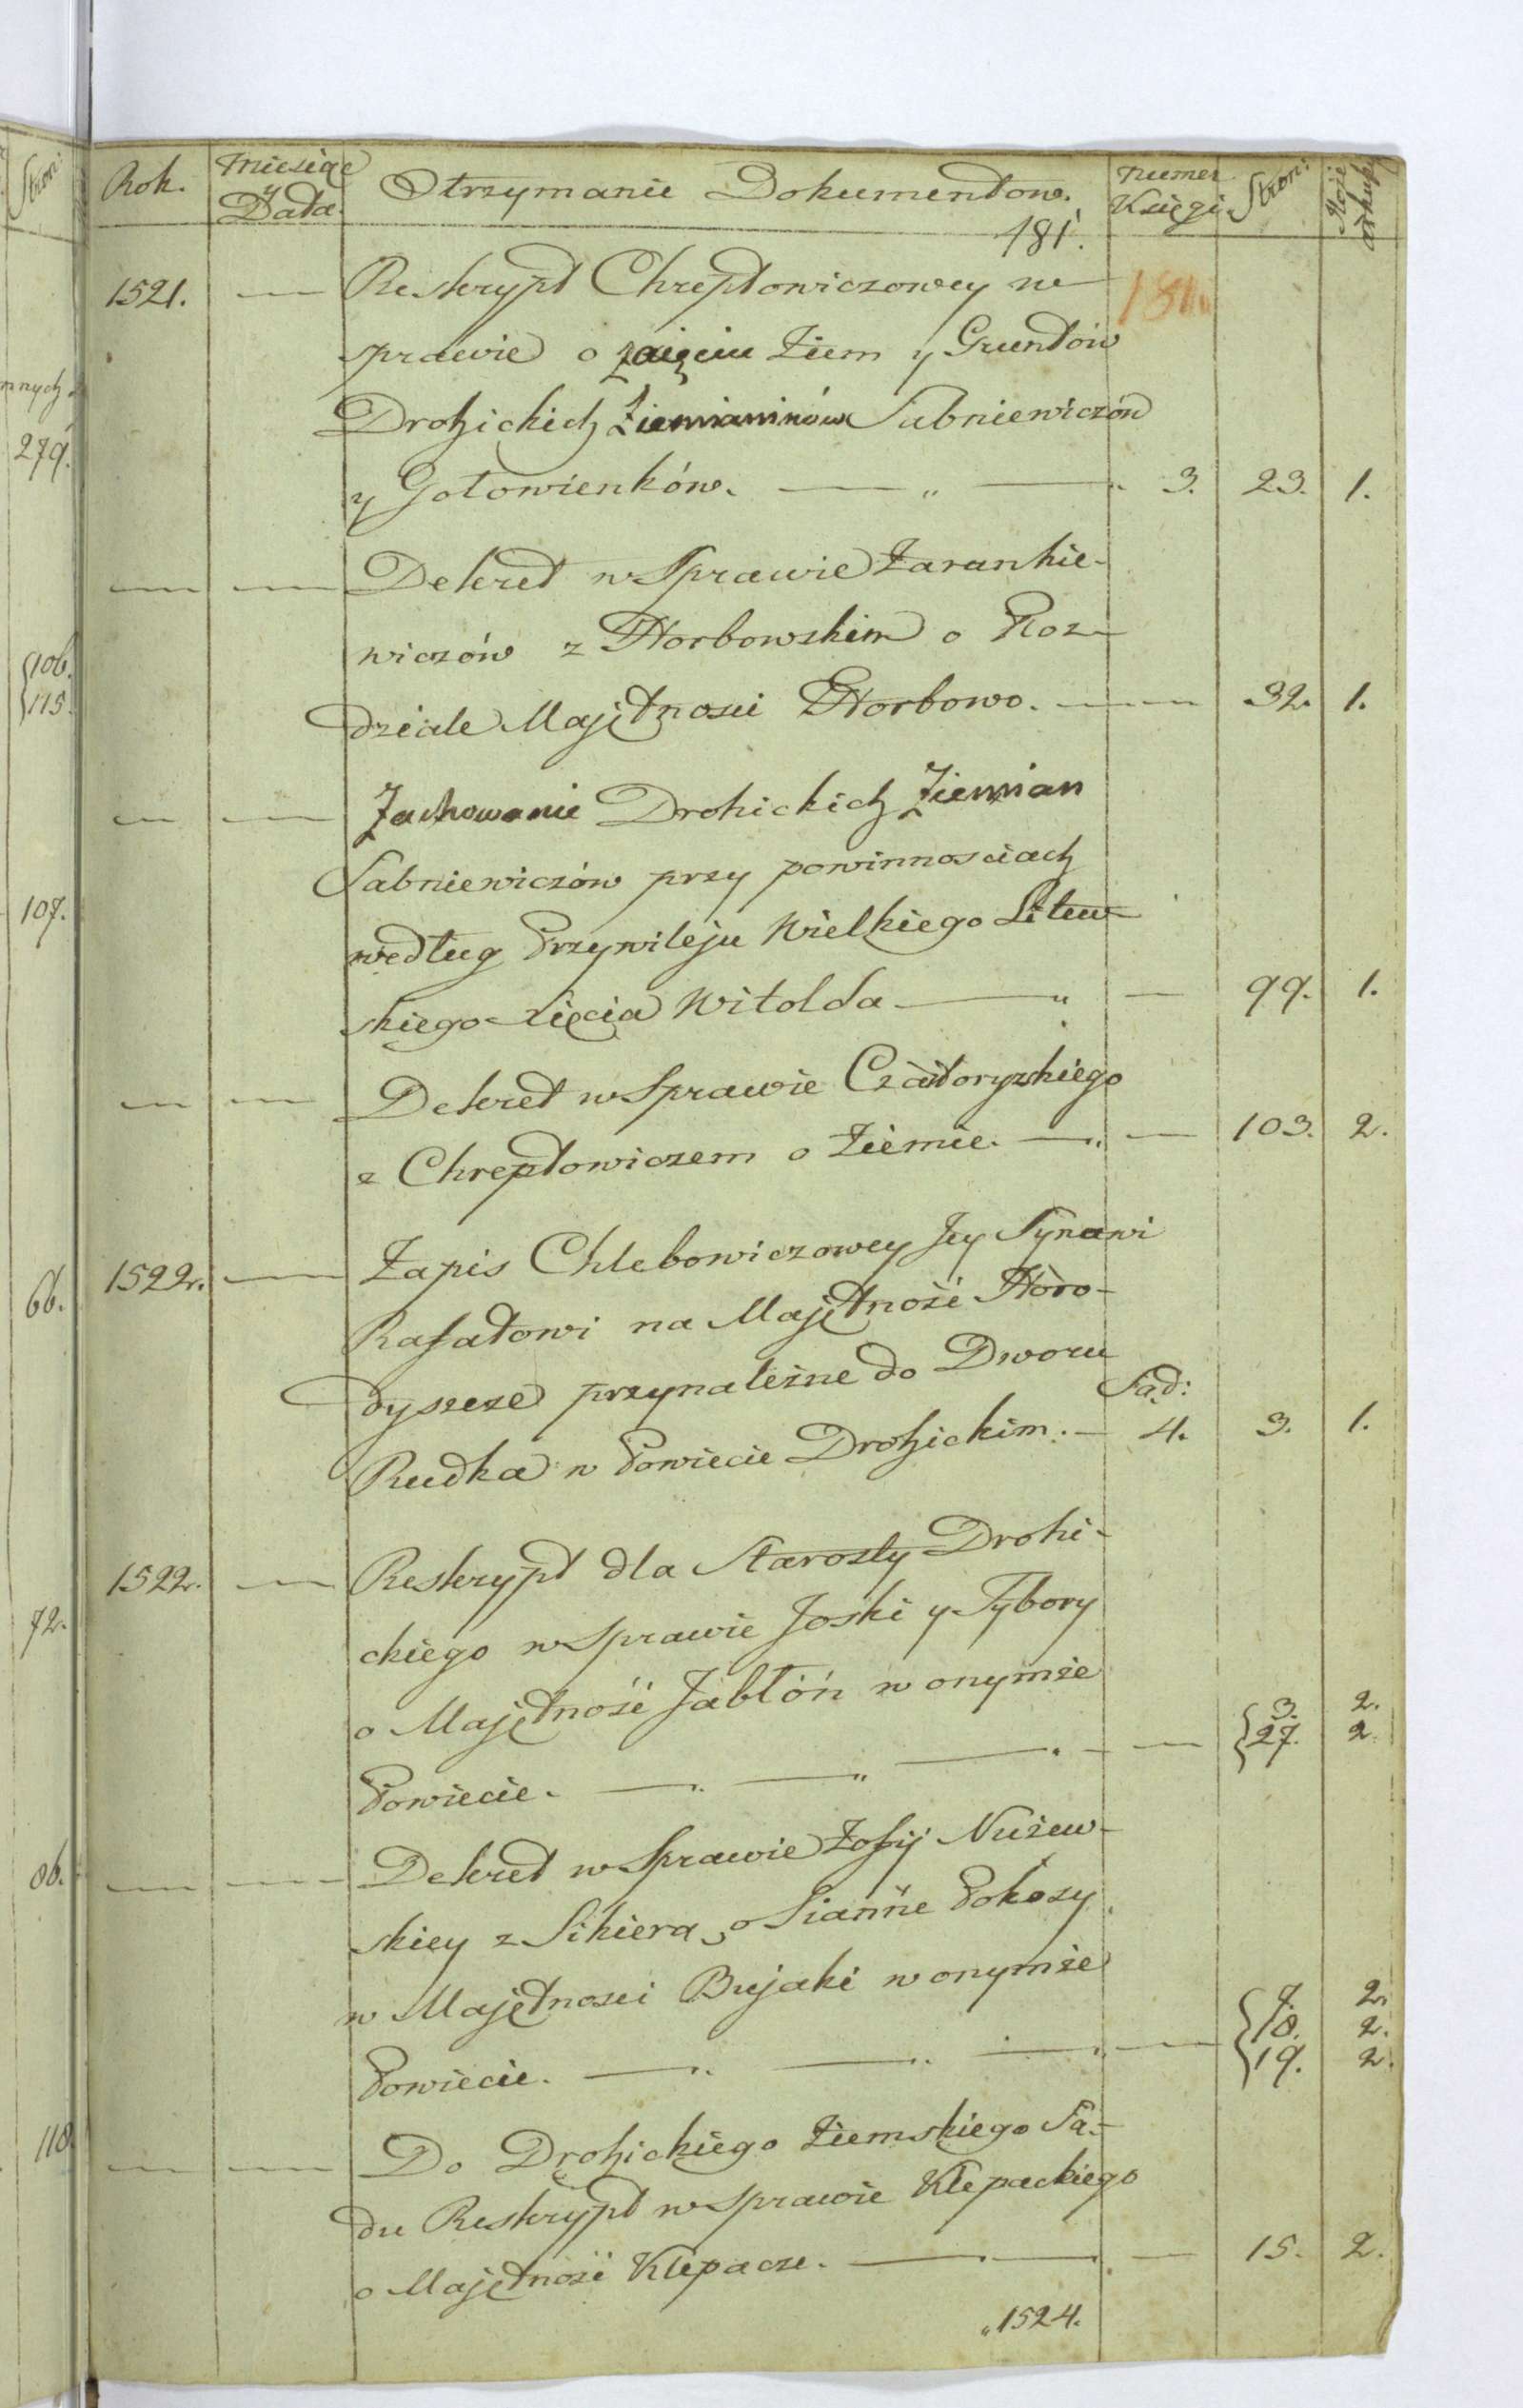 Stron:
Rok.
Miesiąc
y
Data.
Otrzymanie Dokumentow.
Numer
Księgi
Stron:
arkuszy
181.
1521. — Reskrypt Chreptowiczowey we
181.
sprawie o zaięciu Ziem y Gruntów
Drohickich Ziemianinów Sabniewiczów
y Gotowienków. — „ — 3. 23. 1.
— — Dekret w Sprawie Zarankie-
wiczów z Horbowskim o Roz-
dziale Majętnosci Horbowo. — — 32. 1.
— — Zachowanie Drohickich Ziemian
Sabniewiczów przy powinnosciach
według Przywileju Wielkiego Litew-
skiego xięcia Witolda — „ — 99. 1.
— — Dekret w Sprawie Czartoryzkiego
z Chreptowiczem o Ziemie. — „ — 103. 2.
1522. — Zapis Chlebowiczowey Jey Synowi
Rafałowi na Majętność Horo-
dyszcze przynależne do Dworu
Sąd:
Rudka w Powiecie Drohickim. — 4. 3. 1.
1522. — Reskrypt dla Starosty Drohi-
ckiego w Sprawie Joski y Tybory
o Majętność Jabłóń w onymże
3. 2.
Powiecie. — „ — „ — — 27. 2.
— — Dekret w Sprawie Zofij Nużew-
skiey z Sikierą, o Sianne Pokosy
w Majętnosci Bujaki w onymże
7. 2.
18. 2.
Powiecie. — „ — „ — — 19. 2.
— — Do Drohickiego Ziemskiego Są-
du Reskrypt w Sprawie Klepackiego
o Majętność Klepacze. — — — 15. 2.
„1524.
mnych
279.
106.
115.
107.
66.
72.
86.
118.